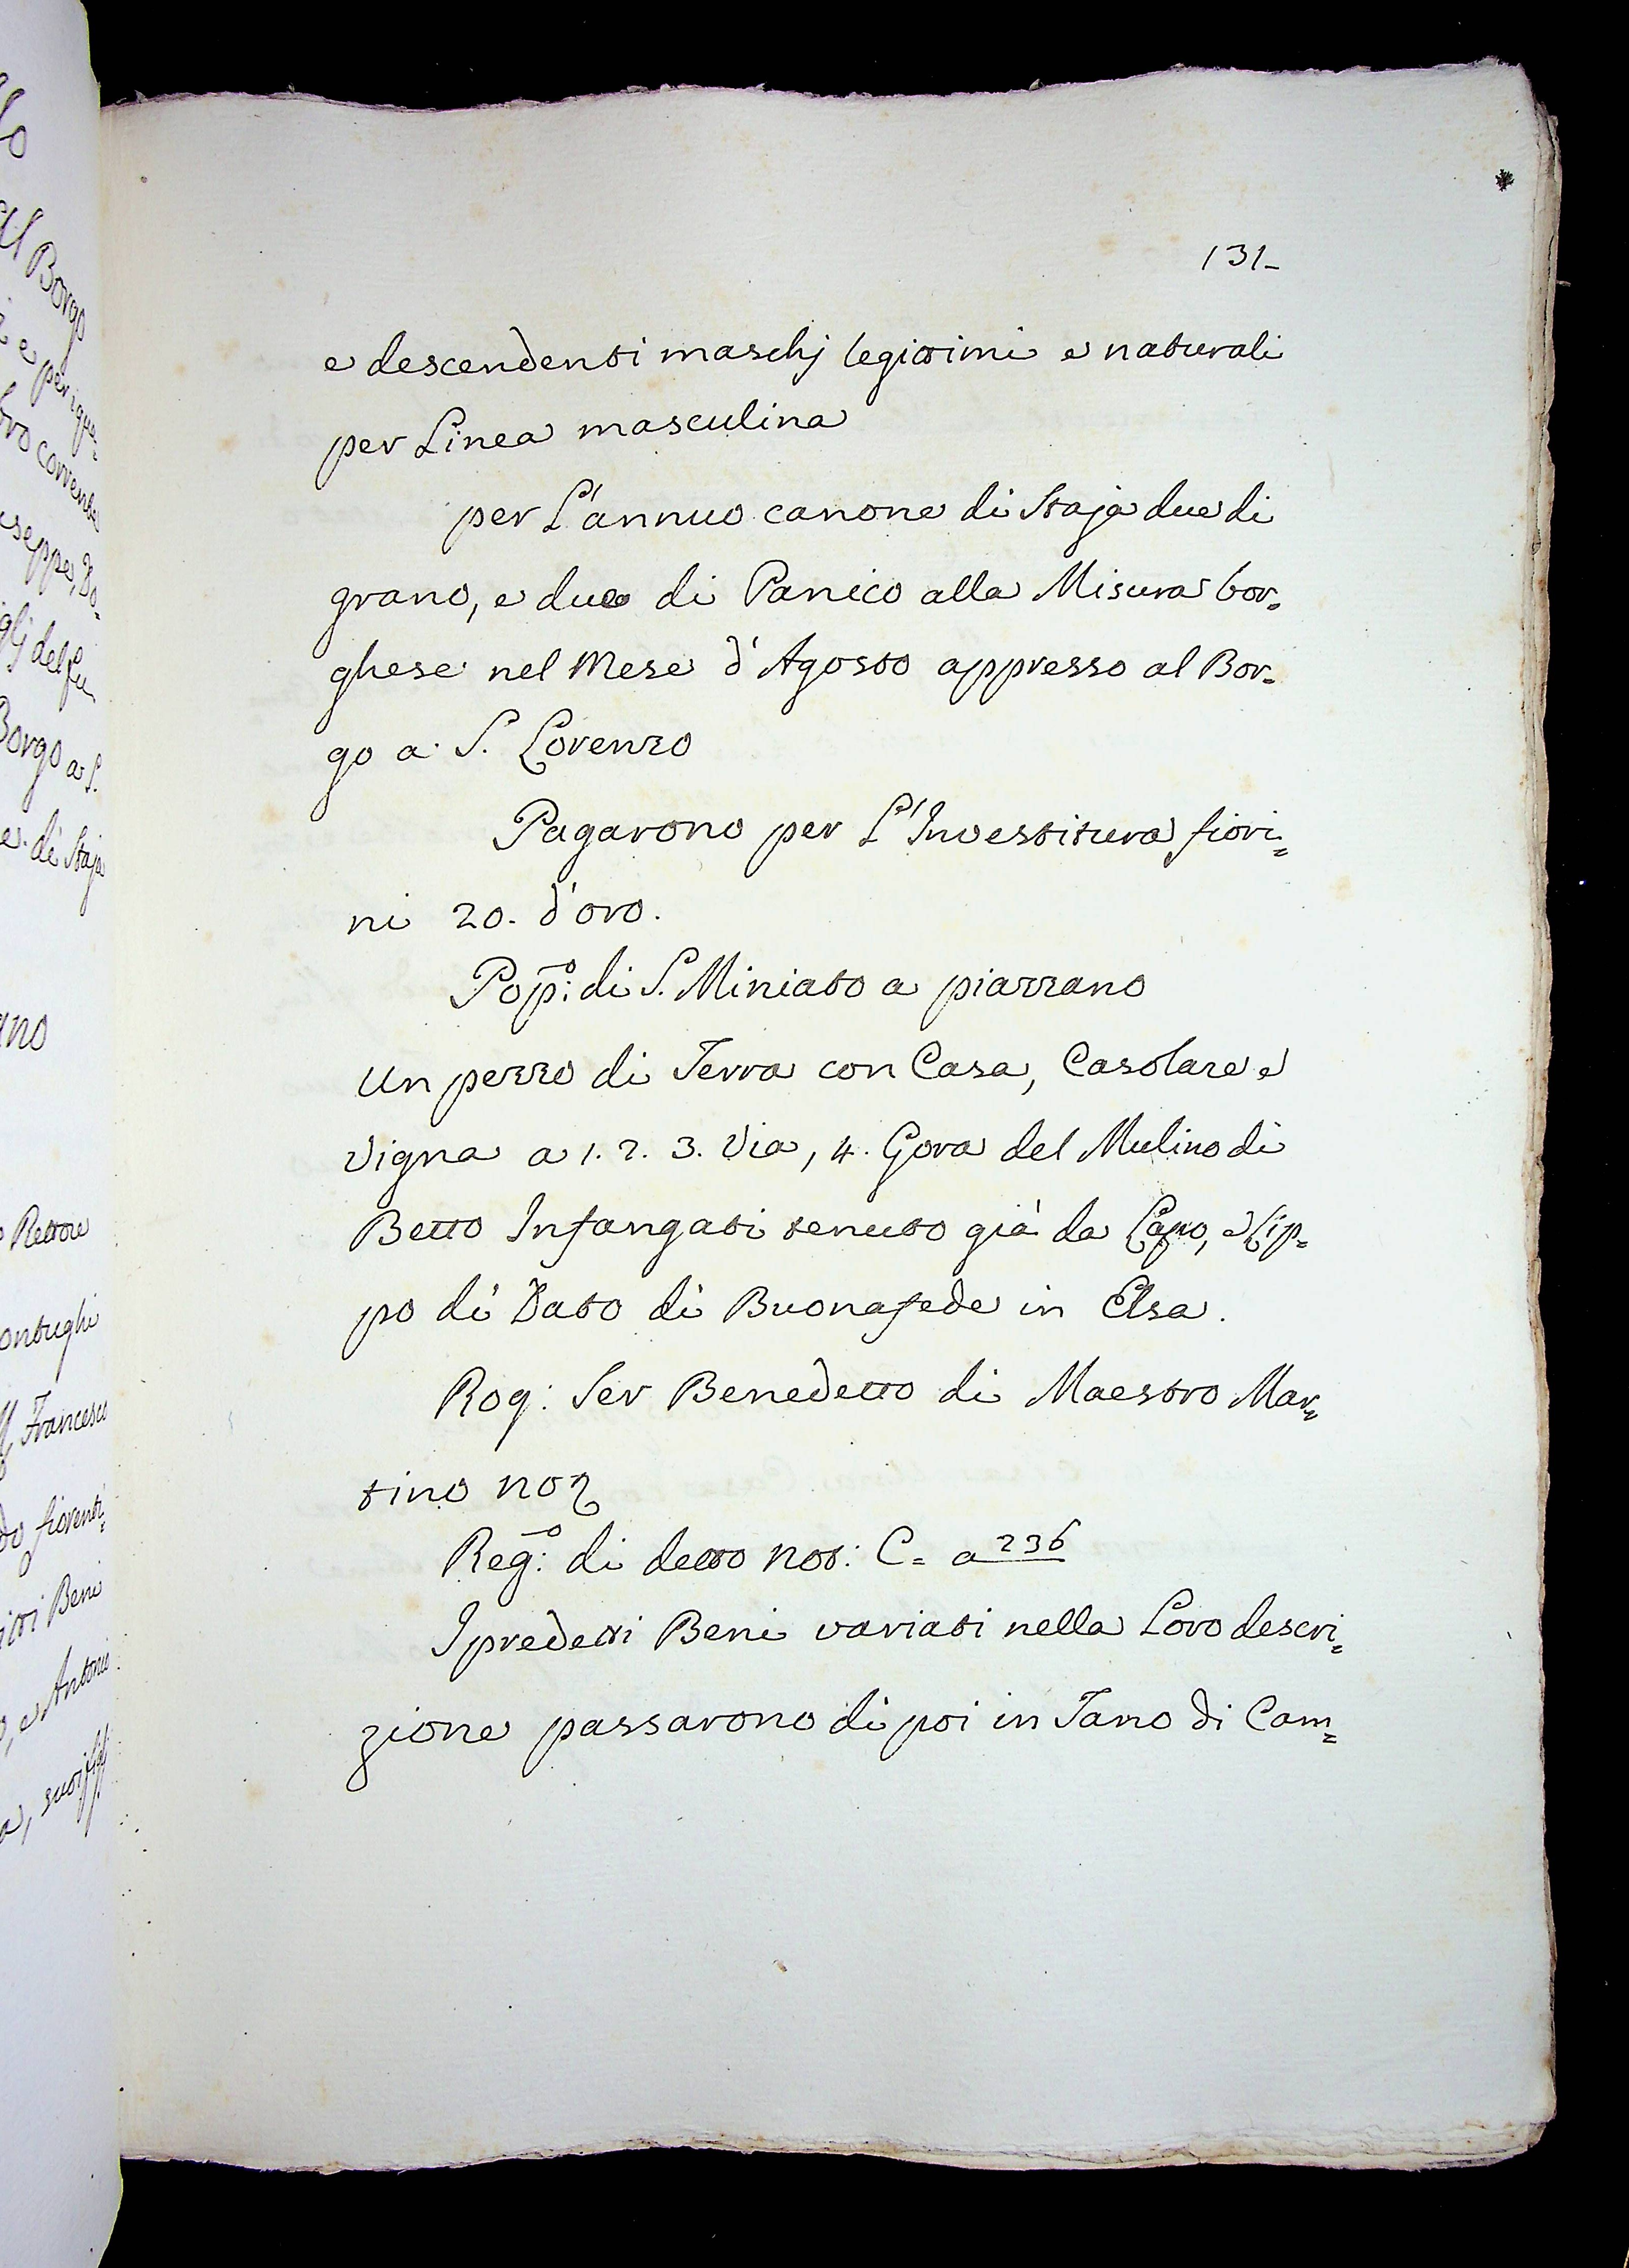 131-
e descendenti maschj legittimi e naturali
per Linea masculina
per L'annuo canone di Staja due di
grano, e due di Panico alla Misura bor=
ghese nel Mese d'Agosto appresso al Bor=
go a S. Lorenzo
Pagarono per L'Investitura fiori=
ni 20. d'oro.
Pop:o di S. Miniato a piazzano
Un pezzo di Terra con Casa, Casolare e
Vigna a 1. 2. 3. Via, 4. Gora del Mulino di
Betto Infangati tenuto già da Lapo, e Lip=
po di Dato di Buonafede in Elsa.
Rog: Ser Benedetto di Maestro Mar=
tino not
Reg:o di detto not: C= a 236
I predetti Beni variati nella Loro descri=
zione passarono di poi in Tano di Cam=
al Borgo
Borgo a S.
e di Staja
Rettore
Francesco
fiorenti=
Beni
e Antonio